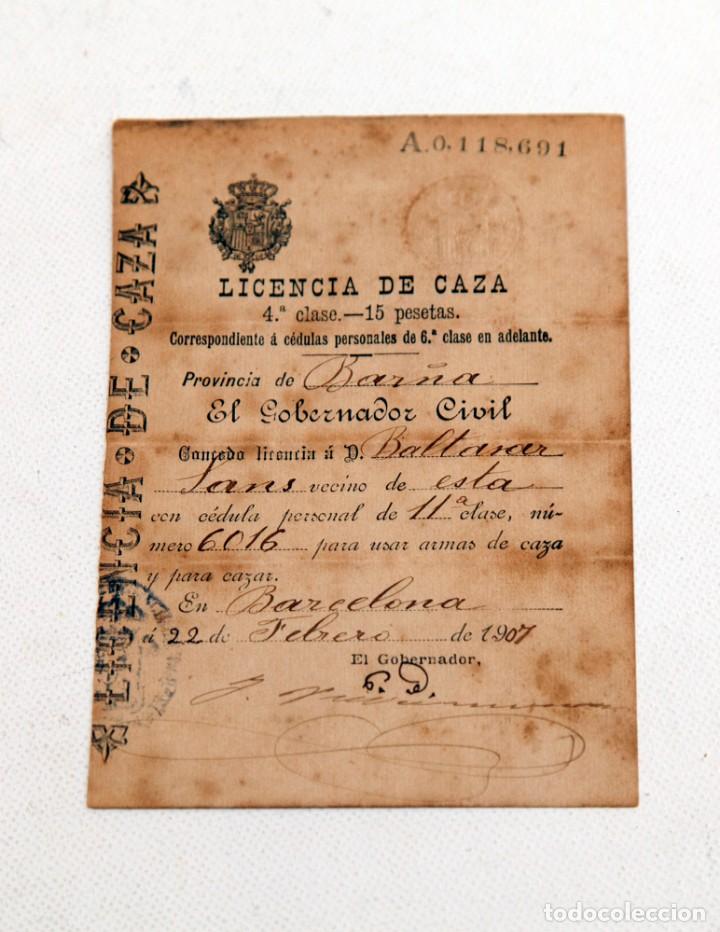 A.0,118,691
LICENCIA DE CAZA
LICENCIA DE CAZA
4.ª clase.—15 pesetas.
Correspondiente á cédulas personales de 6.ª clase en adelante.
Provincia de Barña
El Gobernador Civil
Concedo licencia á D. Baltasar
Sans vecino de esta
con cédula personal de 11ª clase, nú-
mero 6016 para usar armas de caza
y para cazar.
En Barcelona
á 22 de Febrero de 1907
El Gobernador,
todocoleccion
todocoleccion.net